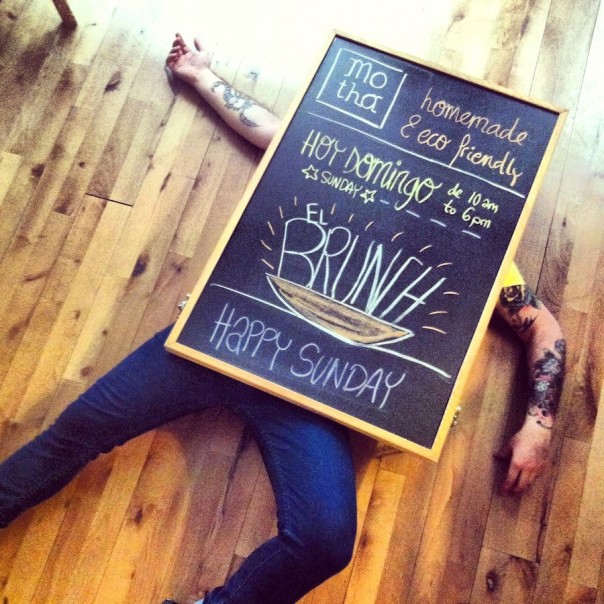 mo
tha
homemade
& eco friendly
HOY DOMINGO de 10 am
SUNDAY to 6 pm
EL
BRUNCH
HAPPY SUNDAY